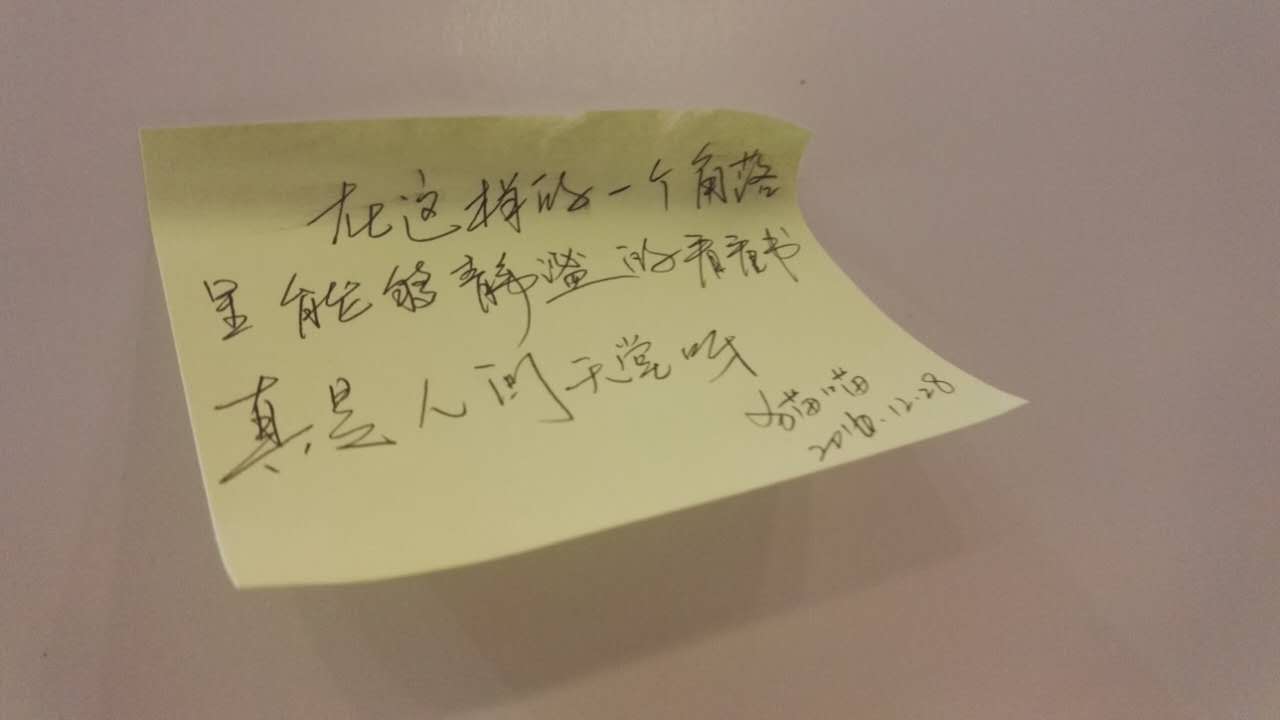 在这样的一个角落
里能够静谧的看看书
真是人间天堂呀
猫喵
2016.12.28